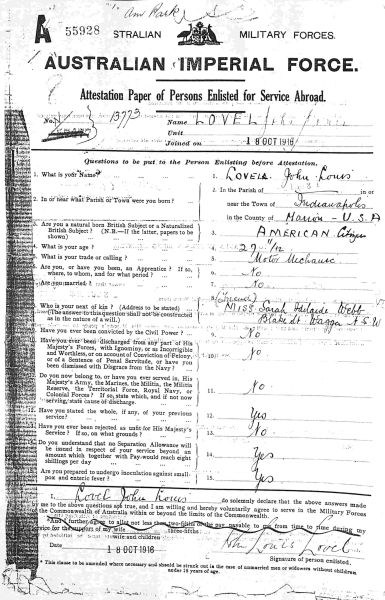 A 55928
STRALIAN MILITARY FORCES.
AUSTRALIAN IMPERIAL FORCE.
Attestation Paper of Persons Enlisted for Service Abroad.
No. 13773 Name LOVEL John Louis
Unit
Joined on 18 OCT 1916
Questions to be put to the Person Enlisting before Attestation.
1. What is your Name? 1. LOVEL John Louis
2. In or near what Parish or Town were you born? 2. In the Parish of in or
near the Town of Indianapolis
in the County of Marion - U.S.A
3. Are you a natural born British Subject or a Naturalized
British Subject? (N.B.—If the latter, papers to be
shown) 3. AMERICAN Citizen
4. What is your age? 4. 29 11/12
5. What is your trade or calling? 5. Motor Mechanic
6. Are you, or have you been, an Apprentice? If so,
where, to whom, and for what period? 6. No
7. Are you married? 7. No
8. Who is your next of kin? (Address to be stated) 8. (Friend)
(The answer to this question shall not be construed
as in the nature of a will.) Miss Sarah Adelaide Webb
Wagga N.S.W
9. Have you ever been convicted by the Civil Power? 9. No
10. Have you ever been discharged from any part of His
Majesty's Forces, with Ignominy, or as Incorrigible
and Worthless, or on account of Conviction of Felony,
or of a Sentence of Penal Servitude, or have you
been dismissed with Disgrace from the Navy? 10. No
11. Do you now belong to, or have you ever served in, His
Majesty's Army, the Marines, the Militia, the Militia
Reserve, the Territorial Force, Royal Navy, or
Colonial Forces? If so, state which, and if not now
serving, state cause of discharge. 11. No
12. Have you stated the whole, if any, of your previous
service? 12. Yes
13. Have you ever been rejected as unfit for His Majesty's
Service? If so, on what grounds? 13. No
14. Do you understand that no Separation Allowance will
be issued in respect of your service beyond an
amount which together with Pay would reach eight
shillings per day 14. Yes
15. Are you prepared to undergo inoculation against small-
pox and enteric fever? 15. Yes
I, Lovel John Louis do solemnly declare that the above answers made
by me to the above questions are true, and I am willing and hereby voluntarily agree to serve in the Military Forces
of the Commonwealth of Australia within or beyond the limits of the Commonwealth.
*And I further agree to allot not less than two-fifths of the pay payable to me from time to time during
my service for the support of my wife
three-fifths wife and children
Date 18 OCT 1916 John Louis Lovel
Signature of person enlisted.
* This clause to be amended where necessary and should be struck out in the case of unmarried men or widowers without children
under 18 years of age.